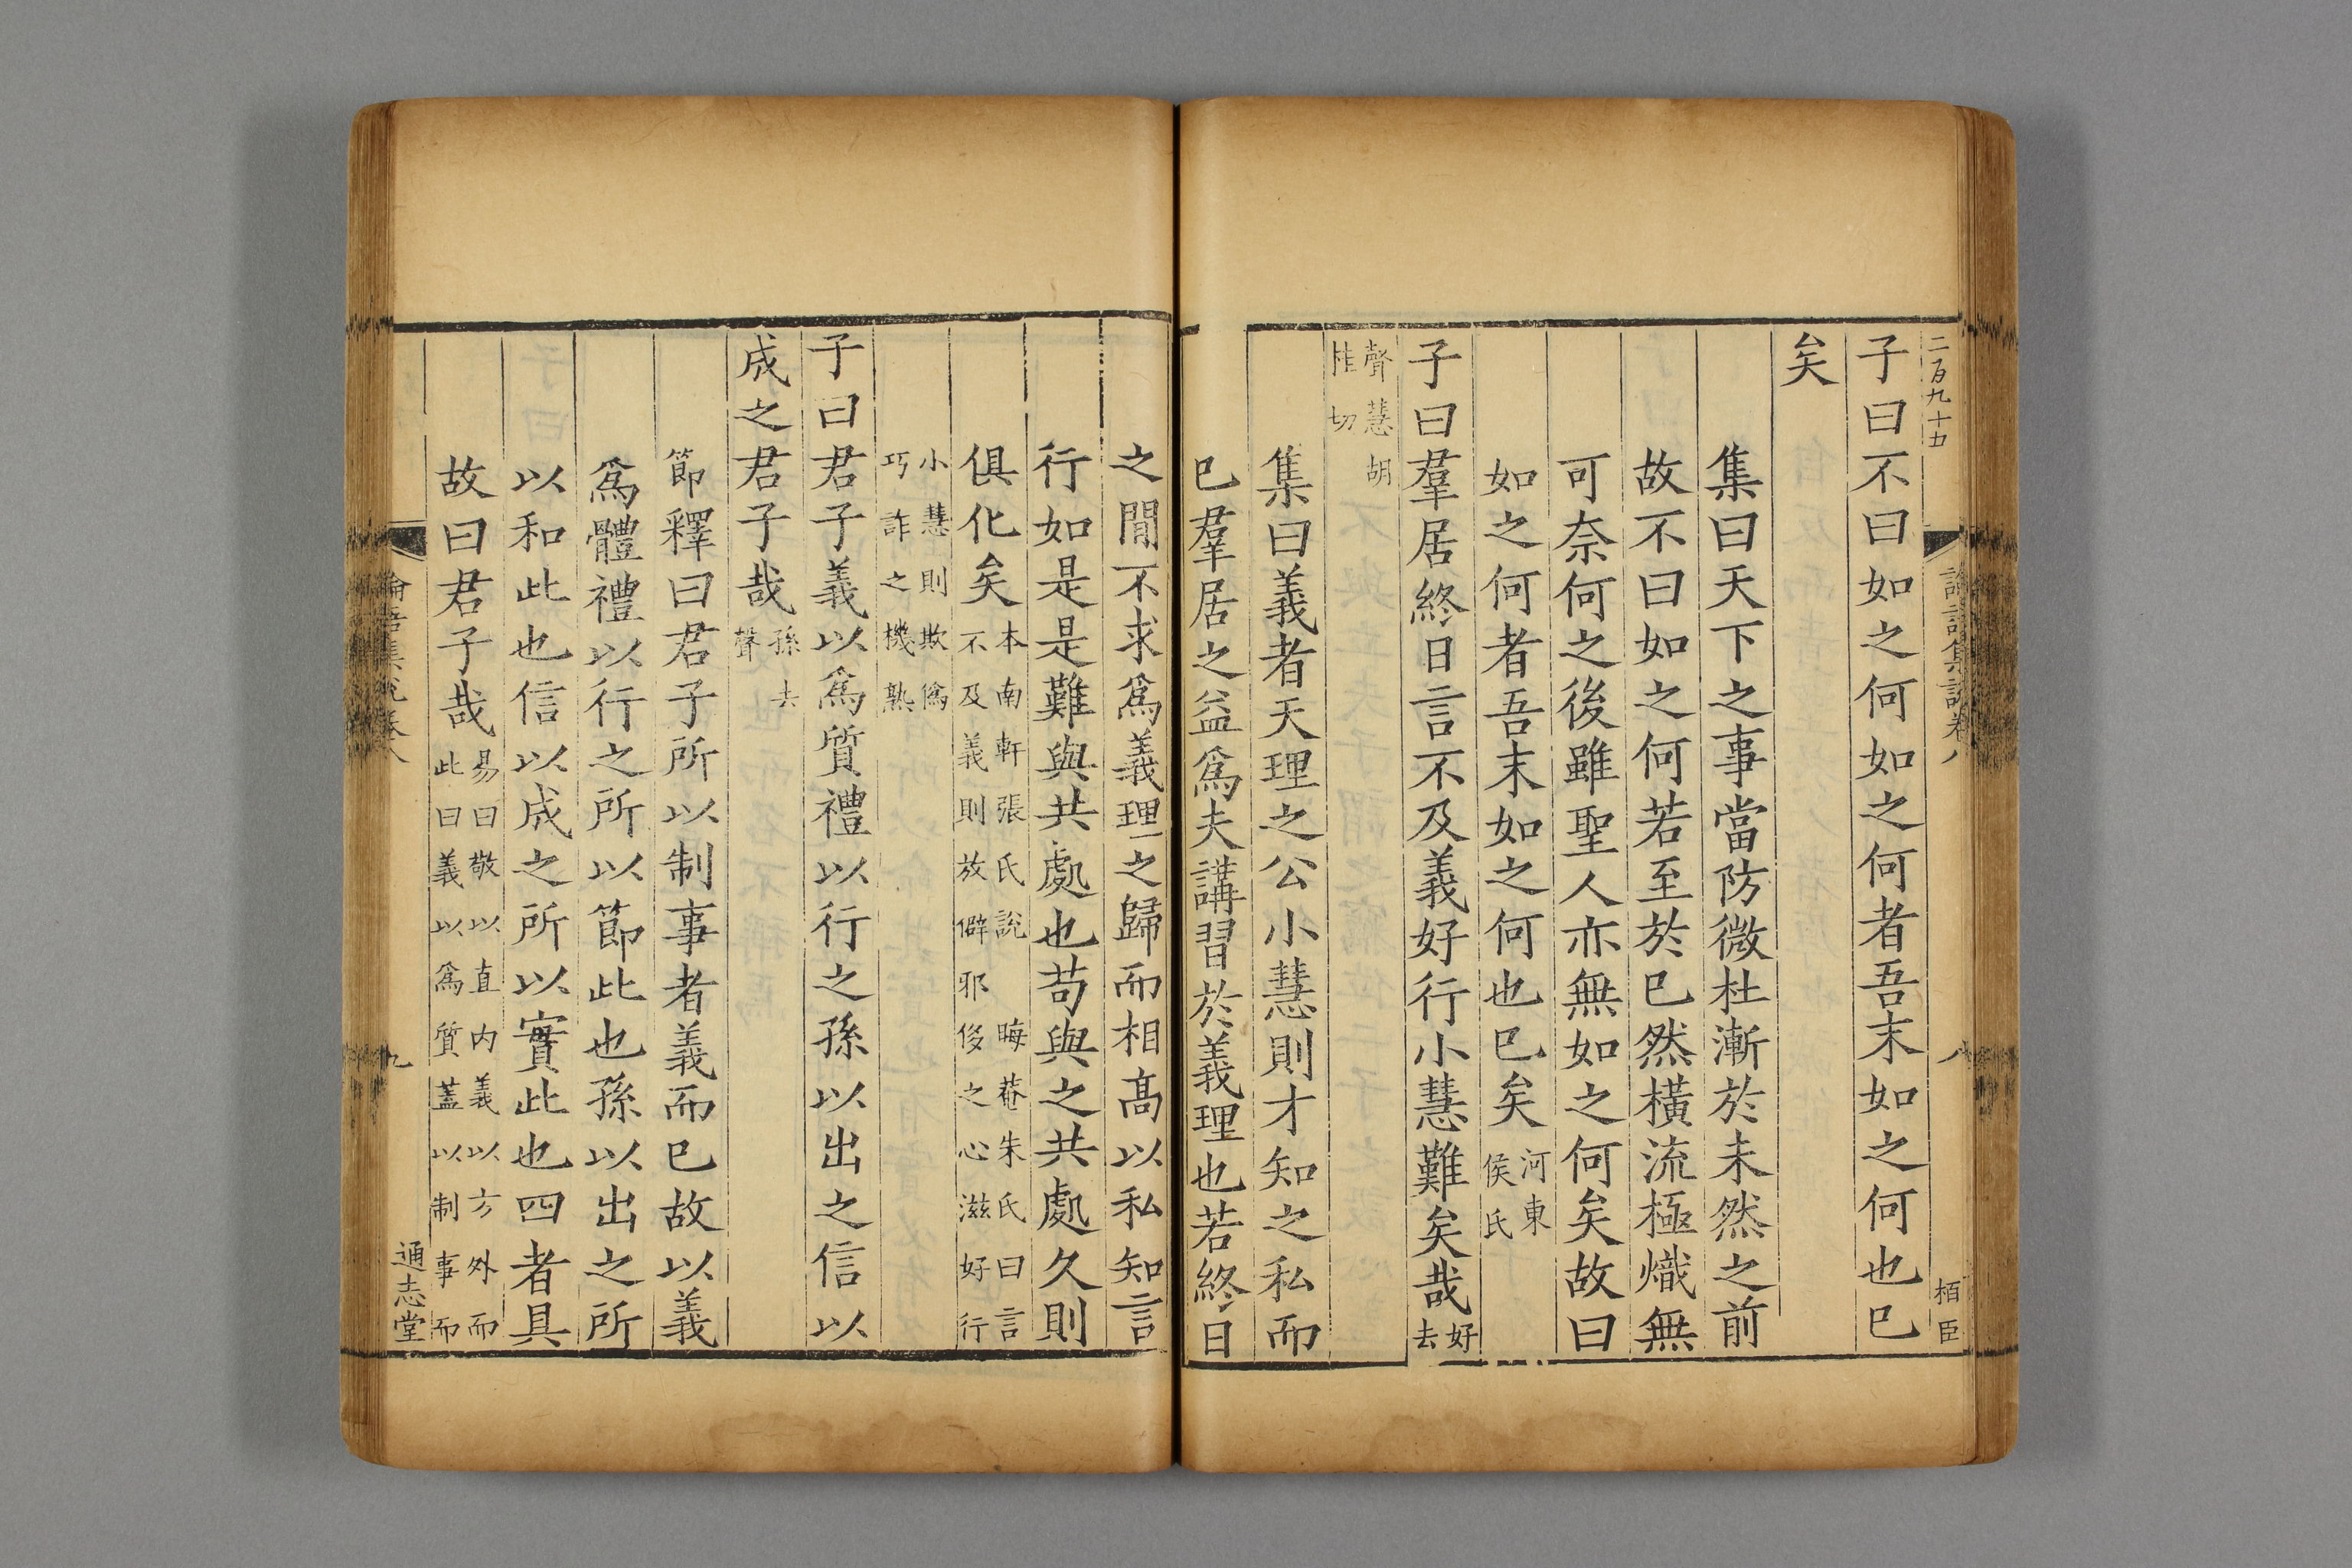 二百九十廿
論語集說卷八
八
栢臣
子曰不曰如之何如之何者吾末如之何也已
矣
集曰天下之事當防微杜漸於未然之前
故不曰如之何若至於已然橫流極熾無
可奈何之後雖聖人亦無如之何矣故曰
如之何者吾末如之何也已矣河東侯氏
子曰羣居終日言不及義好行小慧難矣哉好去
聲慧胡桂切
集曰義者天理之公小慧則才知之私而
已羣居之益爲夫講習於義理也若終日
之閒不求爲義理之歸而相高以私知言
行如是是難與共處也苟與之共處久則
俱化矣本南軒張氏說 晦菴朱氏曰言不及義則放僻邪侈之心滋好行
小慧則欺僞巧詐之機熟
子曰君子義以爲質禮以行之孫以出之信以
成之君子哉孫去聲
節釋曰君子所以制事者義而已故以義
爲體禮以行之所以節此也孫以出之所
以和此也信以成之所以實此也四者具
故曰君子哉易曰敬以直内義以方外而此曰義以爲質蓋以制事而
論語集說卷八
九
通志堂